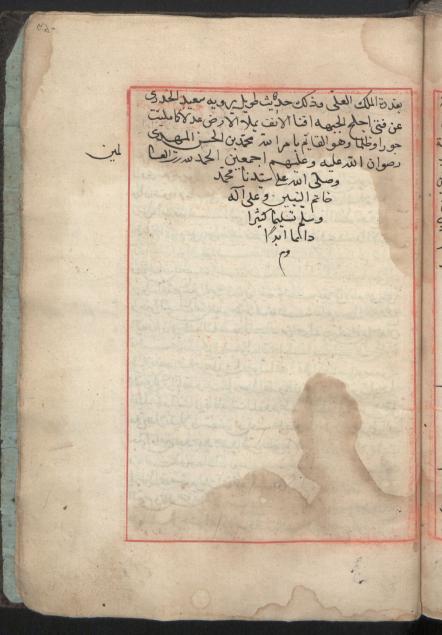 بقدرة الملك العلى وذلك حديث طويل يرويه سعيد الخدرى
عن فتى اجلى الجبهه اقنا الانف يملاء الارض عدلا كما مليت
جورا وظلما وهو القايم بامر الله محمد بن الحسن المهدى
رضوان الله عليه وعليهم اجمعين الحمد لله رب العا
لمين
وصلى الله على سيدنا محمد
خاتم النبيين وعلى آله
وسلم تسليما كثيرا
دائما ابدا
م